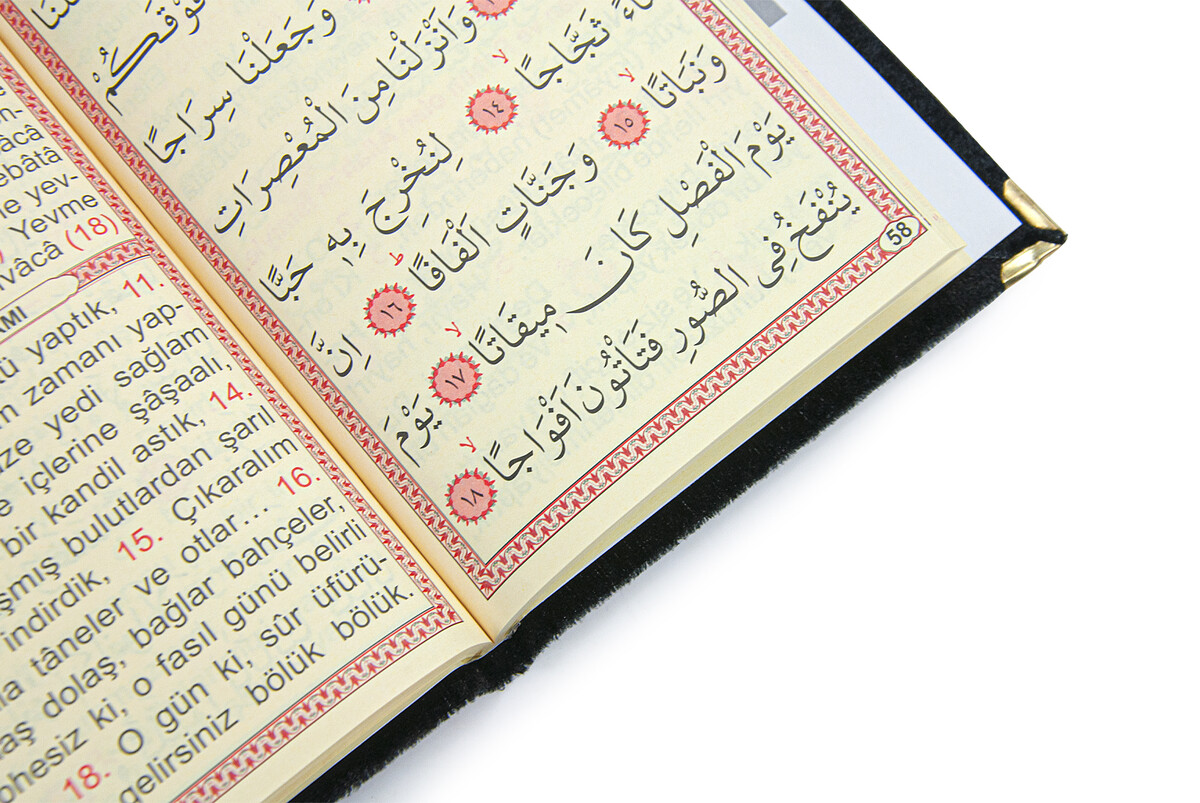 فَوْقَكُمْ
وَجَعَلْنَا سِرَاجًا
وَاَنْزَلْنَا مِنَ الْمُعْصِرَاتِ
ثَجَّاجًا ﴿١٤﴾ لِنُخْرِجَ بِه۪ حَبًّا
وَنَبَاتًا ﴿١٥﴾ وَجَنَّاتٍ اَلْفَافًا ﴿١٦﴾ اِنَّ
يَوْمَ الْفَصْلِ كَانَ م۪يقَاتًا ﴿١٧﴾ يَوْمَ
يُنْفَخُ فِي الصُّورِ فَتَأْتُونَ اَفْوَاجًا ﴿١٨﴾
58
yev-
Yevme
vâcâ (18)
yaptık, 11.
zamanı yap-
yedi sağlam
içlerine şâşaalı,
bir kandil astık, 14.
bulutlardan şarıl
indirdik, 15. Çıkaralım
tâneler ve otlar... 16.
dolaş, bağlar bahçeler,
ki, o fasıl günü belirli
18. O gün ki, sûr üfürü-
gelirsiniz bölük bölük.